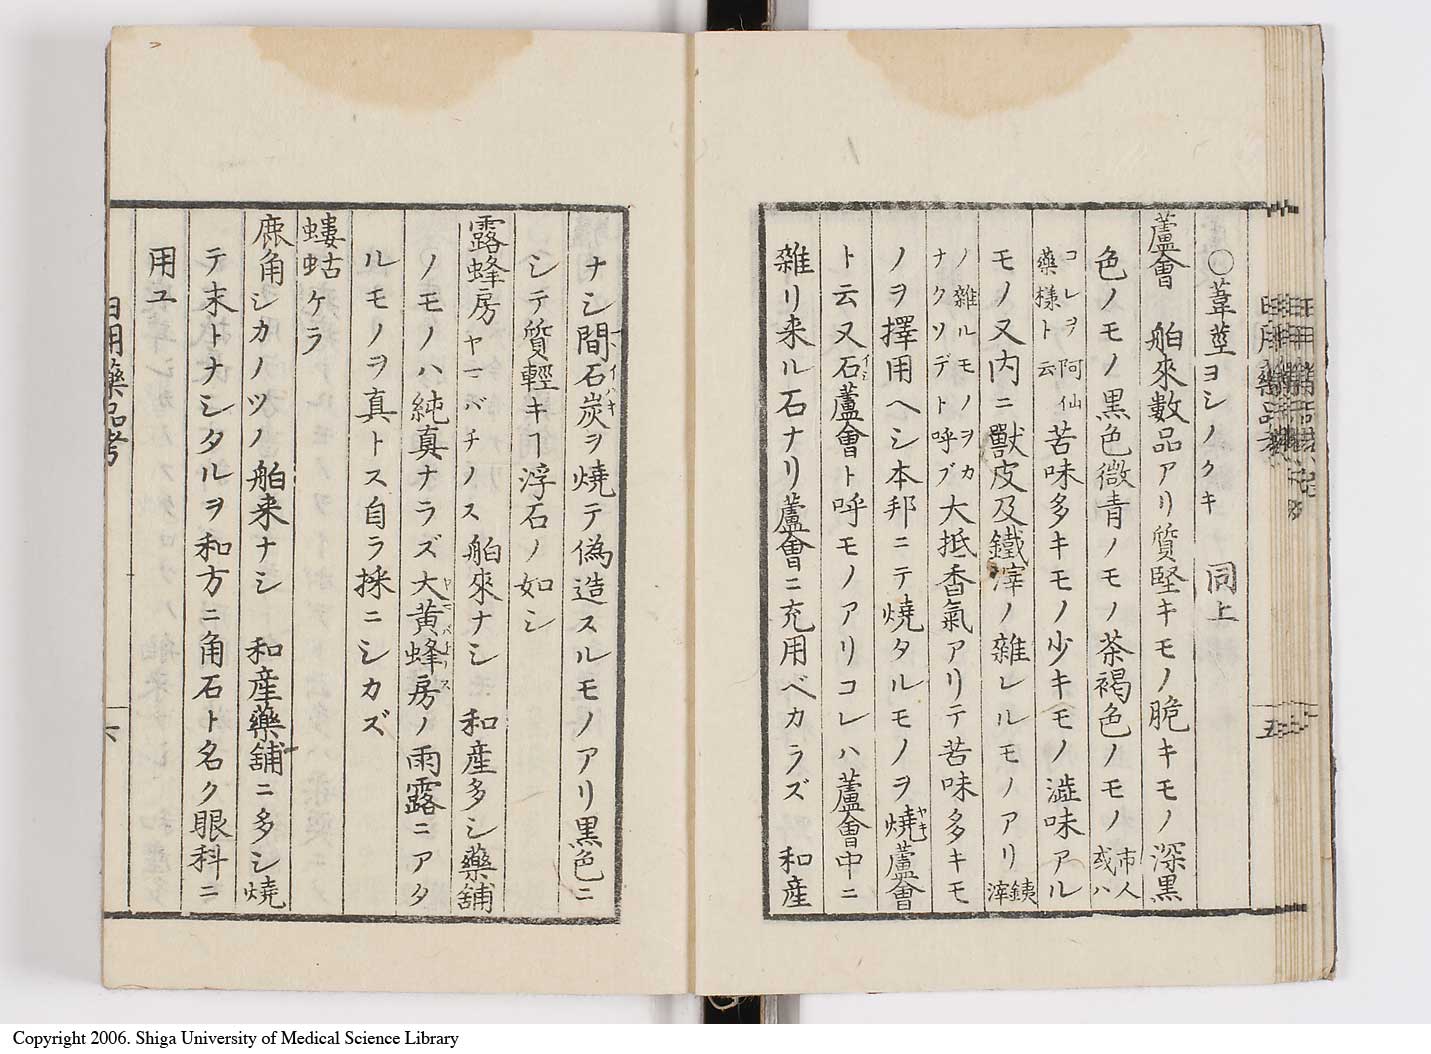 ○葦莖ヨシノクキ　同上
蘆會　舶來數品アリ質堅キモノ脆キモノ深黒
色ノモノ黒色微青ノモノ茶褐色ノモノ市人或ハ
コレヲ阿仙藥樣ト云苦味多キモノ少キモノ澁味アル
モノ又内ニ獸皮及鐵滓ノ雜レルモノアリ銕滓
ノ雜ルモノヲカナクソデト呼ブ大抵香氣アリテ苦味多キモ
ノヲ擇用ヘシ本邦ニテ燒タルモノヲ燒蘆會
ト云又石蘆會ト呼モノアリコレハ蘆會中ニ
雜リ来ル石ナリ蘆會ニ充用ベカラズ　和産
日用藥品考
五
ナシ間石炭ヲ燒テ偽造スルモノアリ黒色ニ
シテ質輕キヿ浮石ノ如シ
露蜂房ヤマバチノス　舶來ナシ　和産多シ藥舖
ノモノハ純真ナラズ大黄蜂房ノ雨露ニアタ
ルモノヲ真トス自ラ採ニシカズ
螻蛄ケラ
鹿角シカノツノ舶来ナシ　和産藥舖ニ多シ燒
テ末トナシタルヲ和方ニ角石ト名ク眼科ニ
用ユ
日用藥品考
六
Copyright 2006. Shiga University of Medical Science Library